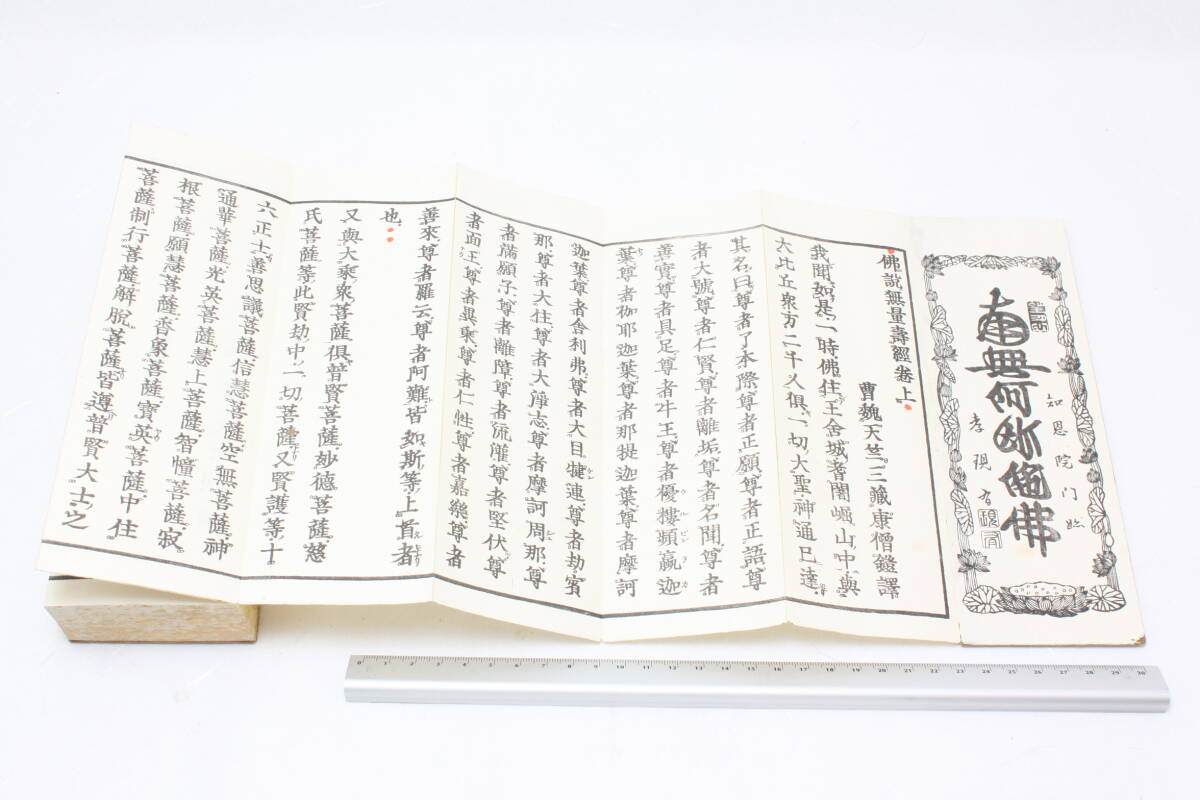 南無阿弥陀佛
知恩院門跡
孝現
佛說無量壽經卷上
曹魏天竺三藏康僧鎧譯
我聞如是一時佛住王舍城耆闍崛山中與
大比丘衆万二千人俱一切大聖神通已達
其名曰尊者了本際尊者正願尊者正語尊
者大號尊者仁賢尊者離垢尊者名聞尊者
善實尊者具足尊者牛王尊者優樓頻蠃迦
葉尊者伽耶迦葉尊者那提迦葉尊者摩訶
迦葉尊者舍利弗尊者大目犍連尊者劫賓
那尊者大住尊者大淨志尊者摩訶周那尊
者滿願子尊者離障尊者流灌尊者堅伏尊
者面王尊者異乘尊者仁性尊者嘉樂尊者
善來尊者羅云尊者阿難皆如斯等上首者
也
又與大乘衆菩薩俱普賢菩薩妙德菩薩慈
氏菩薩等此賢劫中一切菩薩又賢護等十
六正士善思議菩薩信慧菩薩空無菩薩神
通華菩薩光英菩薩慧上菩薩智幢菩薩寂
根菩薩願慧菩薩香象菩薩寶英菩薩中住
菩薩制行菩薩解脫菩薩皆遵普賢大士之
0 1 2 3 4 5 6 7 8 9 10 11 12 13 14 15 16 17 18 19 20 21 22 23 24 25 26 27 28 29 30